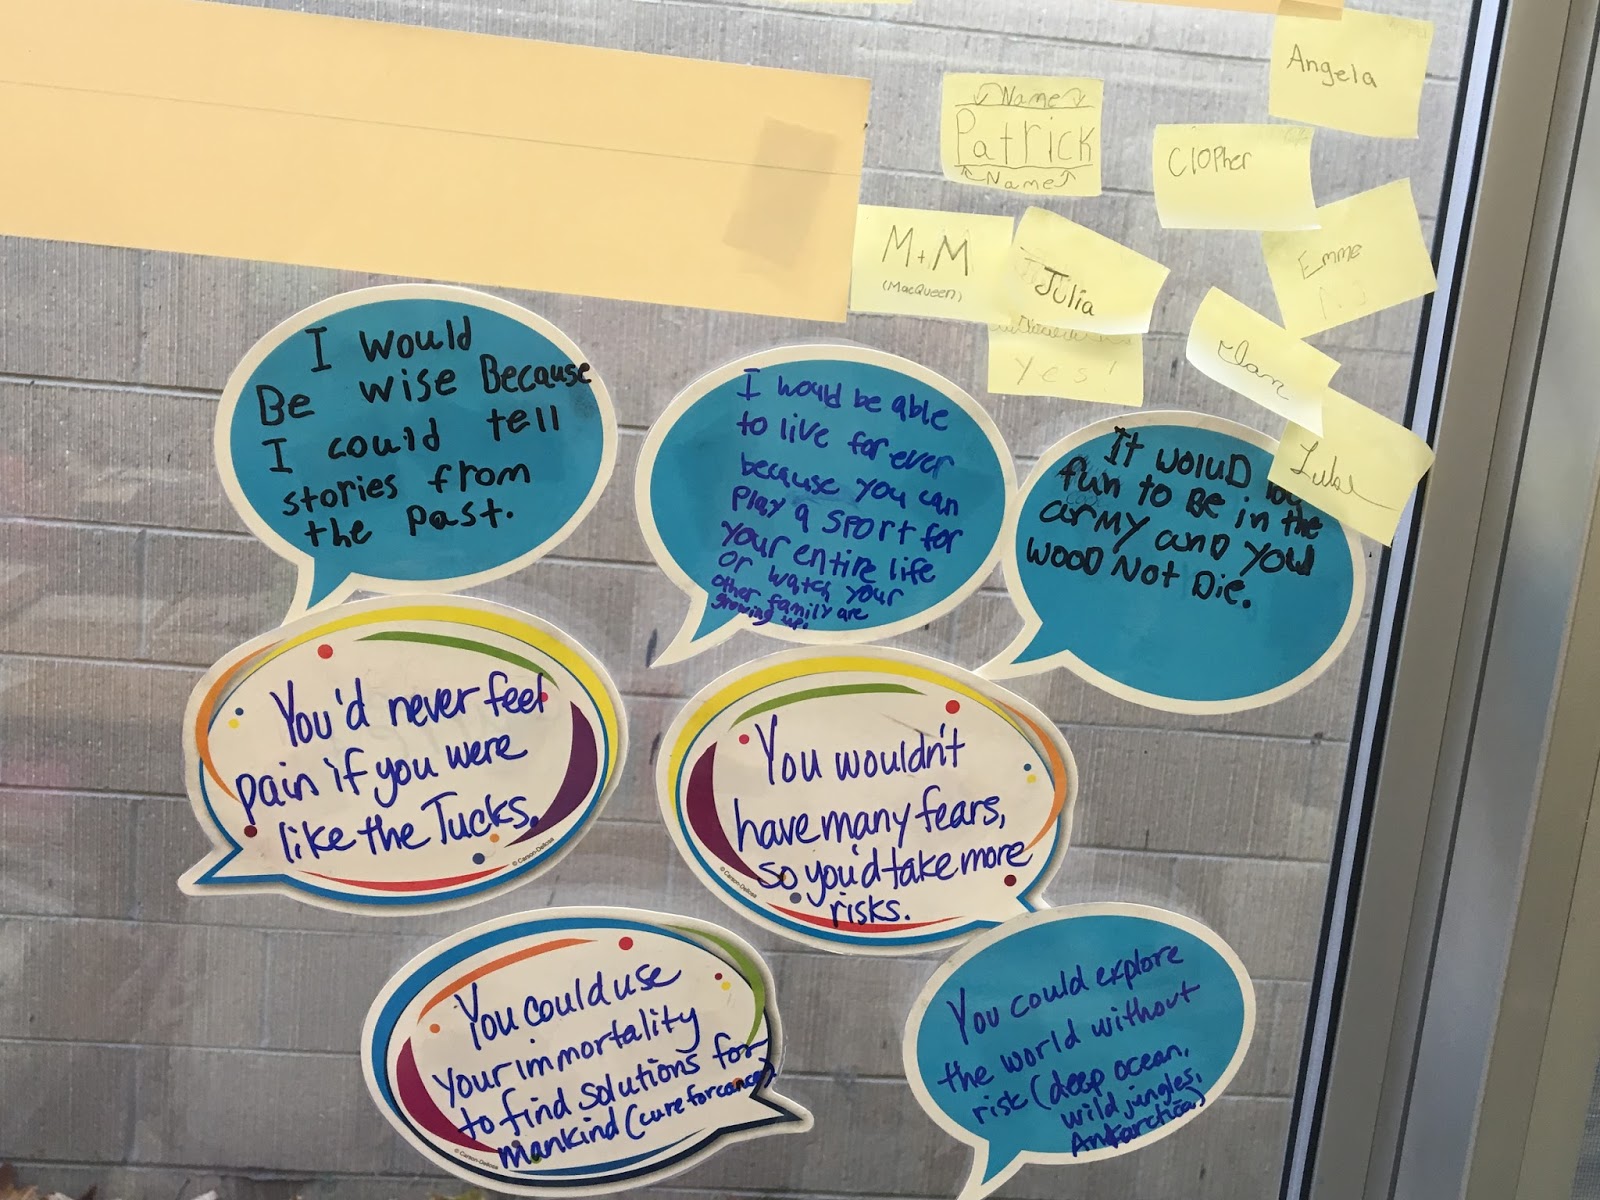 Angela
Name
Patrick
Name
Clopher
M+M
(MacQueen)
Julia
Emme
Yes!
I would
Be wise Because
I could tell
stories from
the past.
I would be able
to live forever
because you can
Play a sport for
your entire life
or watch your
other family are
growing up!
It woluD
fun to Be in the
army and you
wooD Not Die.
You'd never feel
pain if you were
like the Tucks.
© Carson-Dellosa
You wouldn't
have many fears,
so you'd take more
risks.
© Carson-Dellosa
You could use
your immortality
to find solutions for
mankind (cure for cancer)
© Carson-Dellosa
You could explore
the world without
risk (deep ocean,
wild jungles,
Antarctica)